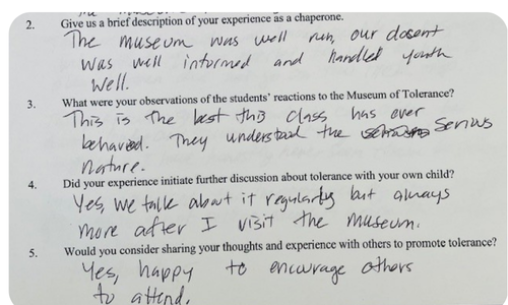 2. Give us a brief description of your experience as a chaperone.
The museum was well run, our dosent
was well informed and handled youth
well.
3. What were your observations of the students' reactions to the Museum of Tolerance?
This is the best this class has ever
behaved. They understood the serious
nature.
4. Did your experience initiate further discussion about tolerance with your own child?
Yes, we talk about it regularly but always
more after I visit the museum.
5. Would you consider sharing your thoughts and experience with others to promote tolerance?
Yes, happy to encourage others
to attend.